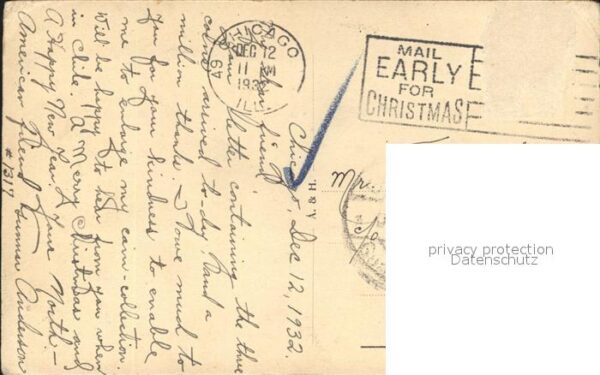 Chicago, Dec 12, 1932.
My dear friend,
Your letter containing the three
coins arrived to-day and a
million thanks. I owe much to
you for your kindness to enable
me to enlarge my coin-collection.
Will be happy to hear from you when
in Chile. A Merry Christmas and
A Happy New Year. Your North-
American friend Gunnar Anderson
# 1317
CHICAGO
DEC 12
11 M
193
ILL
MAIL
EARLY
FOR
CHRISTMAS
A. & H.
Mr.
privacy protection
Datenschutz